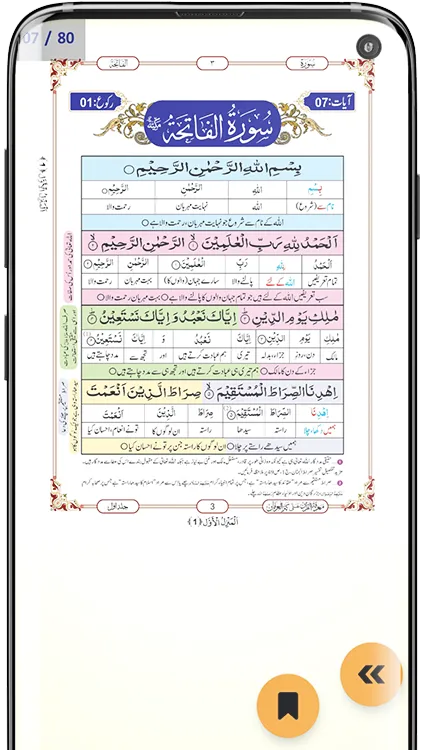 07 / 80
سُورَۃ
۳
الفَاتِحَۃ
آیات:07
سُوْرَۃُ الْفَاتِحَۃِ مَکِّیَّۃٌ
رکوع:01
بِسْمِ اللّٰهِ الرَّحْمٰنِ الرَّحِیْمِ
بِسْمِ اللّٰهِ الرَّحْمٰنِ الرَّحِیْمِ
نام سے (شروع) اللہ نہایت مہربان رحمت والا
اللہ کے نام سے شروع جو نہایت مہربان، رحمت والا ہے
اَلْحَمْدُ لِلّٰهِ رَبِّ الْعٰلَمِیْنَ الرَّحْمٰنِ الرَّحِیْمِ
اَلْحَمْدُ لِلّٰهِ رَبِّ الْعٰلَمِیْنَ الرَّحْمٰنِ الرَّحِیْمِ
تمام تعریفیں اللہ کے لئے پالنے والا سارے جہان (والوں کا) بہت مہربان رحمت والا
سب تعریفیں اللہ کے لئے ہیں جو تمام جہان والوں کا پالنے والا ہے بہت مہربان رحمت والا
مٰلِكِ یَوْمِ الدِّیْنِ اِیَّاكَ نَعْبُدُ وَ اِیَّاكَ نَسْتَعِیْنُ
مٰلِكِ یَوْمِ الدِّیْنِ اِیَّاكَ نَعْبُدُ وَ اِیَّاكَ نَسْتَعِیْنُ
مالک دن، روز جزاء، بدلہ تیری ہم عبادت کرتے ہیں اور تجھ سے مدد چاہتے ہیں
جزاء کے دن کا مالک ہم تیری ہی عبادت کرتے ہیں اور تجھ ہی سے مدد چاہتے ہیں
اِهْدِنَا الصِّرَاطَ الْمُسْتَقِیْمَ صِرَاطَ الَّذِیْنَ اَنْعَمْتَ
اِهْدِنَا الصِّرَاطَ الْمُسْتَقِیْمَ صِرَاطَ الَّذِیْنَ اَنْعَمْتَ
ہمیں دکھا، چلا راستہ سیدھا راستہ ان لوگوں کا تونے انعام، احسان کیا
ہمیں سیدھے راستے پر چلا ان لوگوں کا راستہ جن پر تونے احسان کیا
3
جلد اوّل
اَلْمَنْزِلُ الْاَوَّل (1)